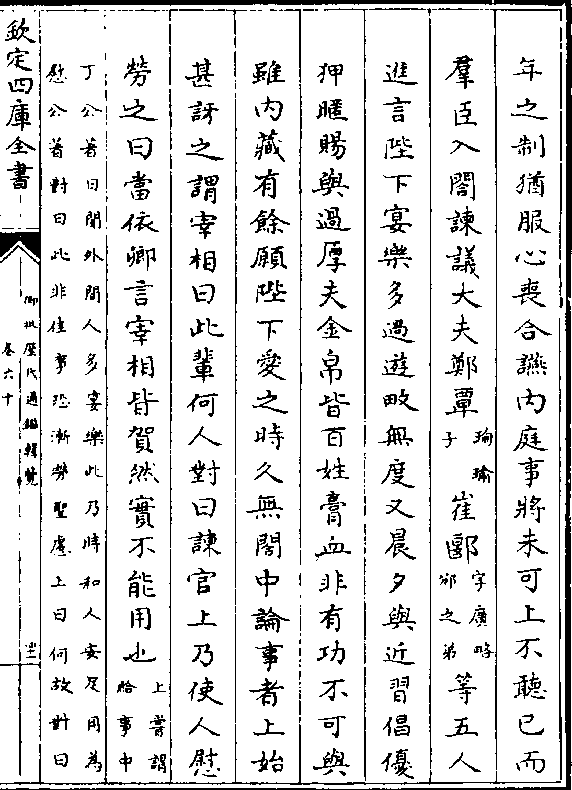 年之制猶服心喪合讌內庭事將未可上不聽已而
羣臣入閤諫議大夫鄭覃珣瑜子崔郾字廣略邠之弟等五人
進言陛下宴樂多過遊畋無度又晨夕與近習倡優
狎暱賜與過厚夫金帛皆百姓膏血非有功不可與
雖內藏有餘願陛下愛之時久無閤中論事者上始
甚訝之謂宰相曰此輩何人對曰諫官上乃使人慰
勞之曰當依卿言宰相皆賀然實不能用也上嘗謂給事中
丁公著曰聞外間人多宴樂此乃時和人安足用為
慰公著對曰此非佳事恐漸勞聖慮上曰何故對曰
欽定四庫全書
御批歷代通鑑輯覽
卷六十